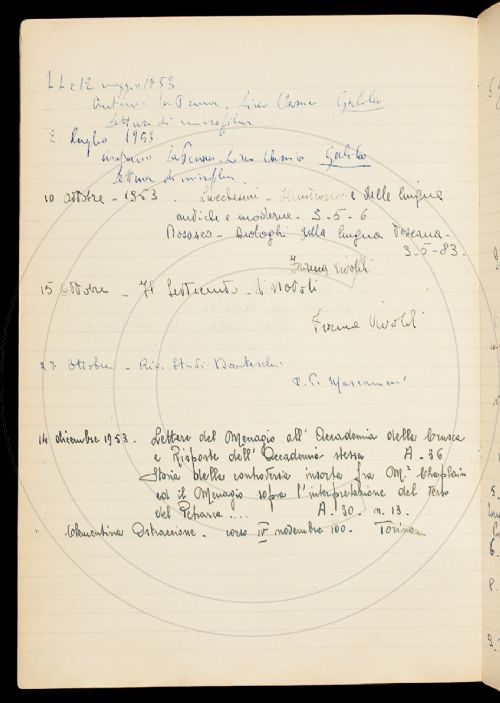 11 e 12 maggio 1953
Antonio La Penna. Liceo Classico Galileo
Lettura di microfilm
2 luglio 1953
Antonio La Penna - Liceo Classico Galileo
Lettura di microfilm
10 ottobre - 1953. Lucchesini - Illustrazione delle lingue
antiche e moderne - 3-5-6
Rosasco - Dialoghi della lingua Toscana -
3-5-83.
Franca Vivoldi
15 Ottobre - Il Settecento - di Natali
Franca Vivoldi
27 Ottobre - Riv. Studi Danteschi
14 dicembre 1953. Lettere del Menagio all'Accademia della Crusca
e Risposte dell'Accademia stessa A-36
Storia della controversia insorta fra M.r Chaplain
ed il Menagio sopra l'interpretazione del testo
del Petrarca .... A. 30 - n. 13.
Clementina corso IV novembre 100 - Torino